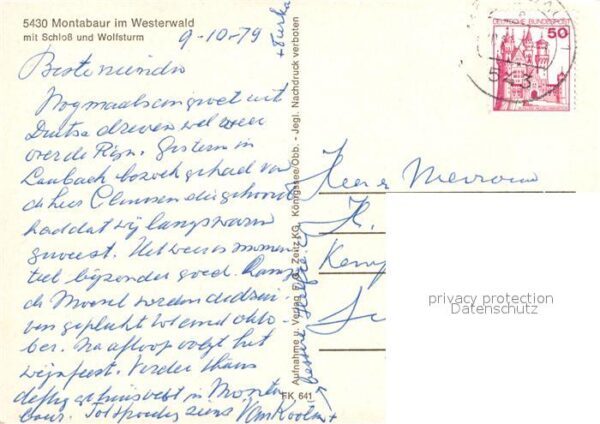 5430 Montabaur im Westerwald
mit Schloß und Wolfsturm
9-10-79
Beste vrienden
Nogmaals een groet uit
Duitsland
over de Rijn. Gisteren in
Laubach bezoek gehad van
de heer Claussen die gehoord
had dat wij langs waren
geweest. Het weer is momen
teel bijzonder goed. Langs
de Moezel worden de druiven
geplukt tot eind okto
ber. Na afloop volgt het
wijnfeest. Verder thans
deftig gehuisvest in Monta
baur. Tot spoedig ziens
Aufnahme u. Verlag F. G. Zeitz KG, Königssee/Obb. - Jegl. Nachdruck verboten
FK 641
DEUTSCHE BUNDESPOST
50
Heer & Mevrouw
H.
Kemp
privacy protection
Datenschutz